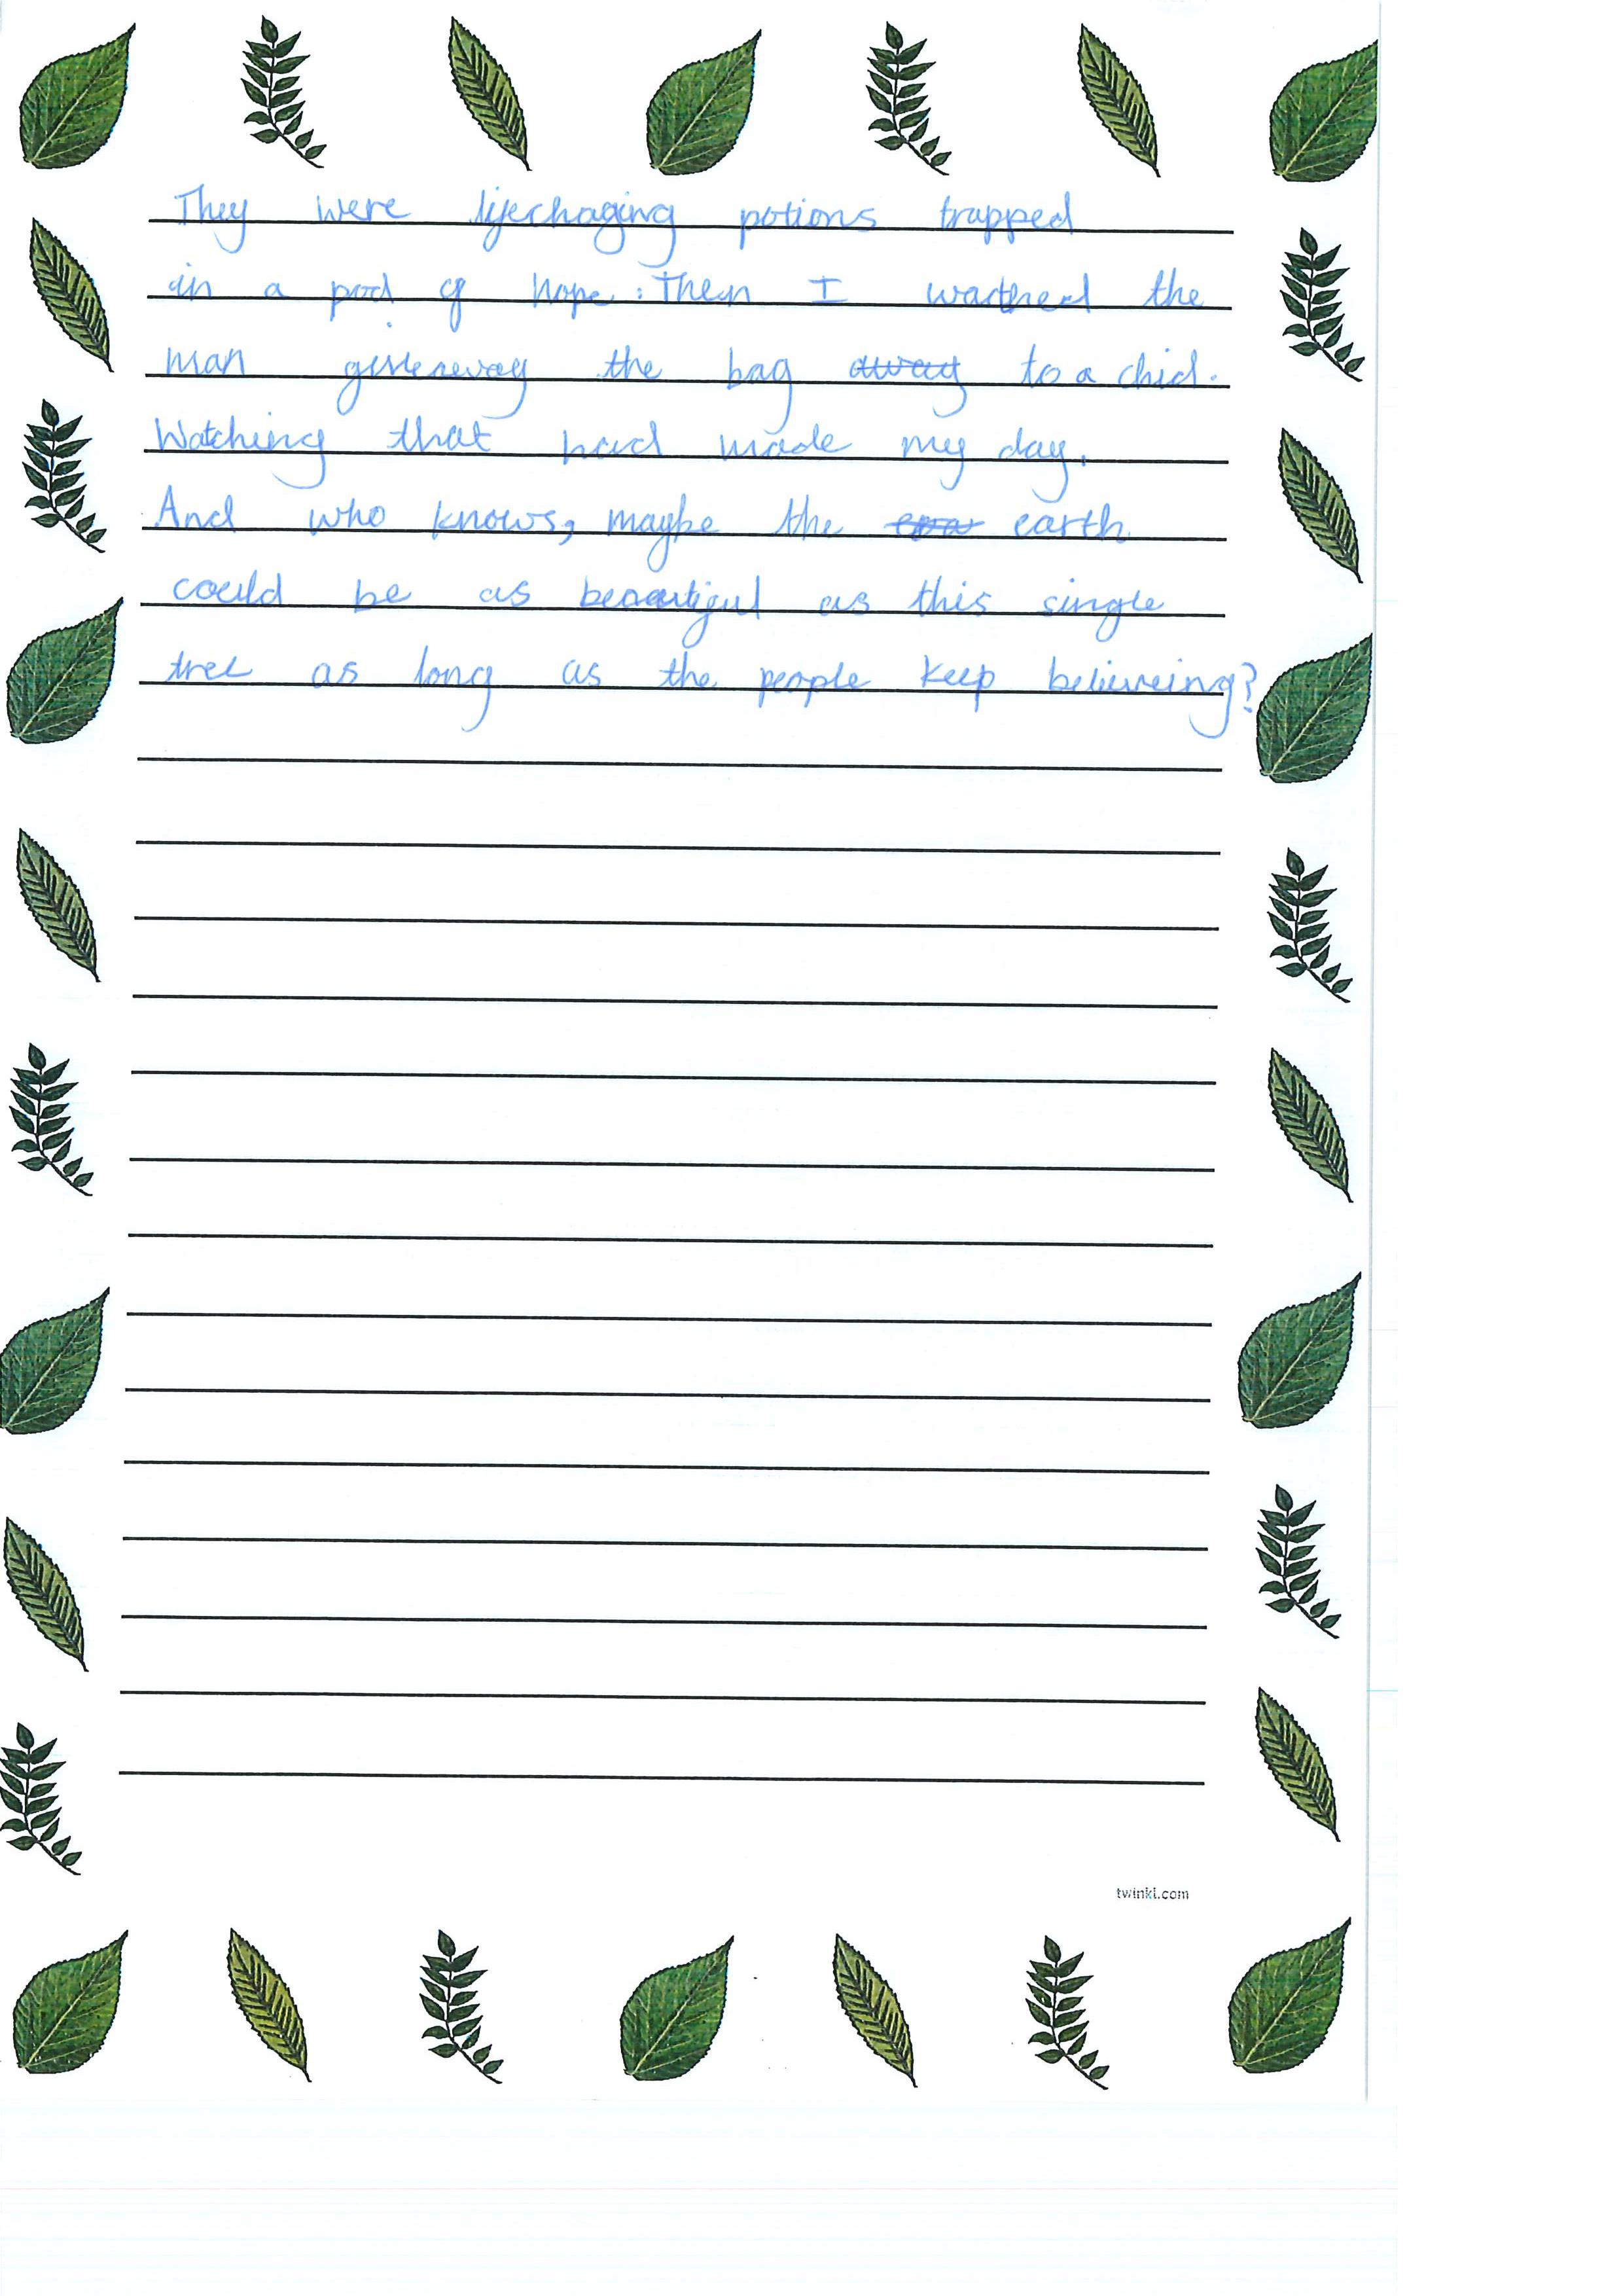 They were lifechaging potions trapped
in a pod of hope. Then I the
man the bag away to a chid.
Watching that had made my day.
And who knows, maybe the earth
could be as beautiful as this single
tree as long as the people keep believeing?
twinkl.com